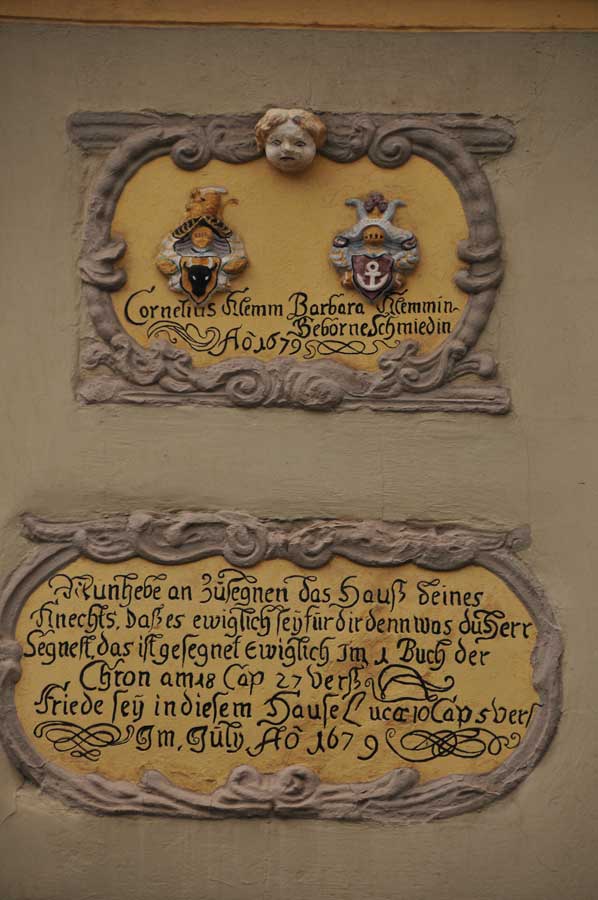 Cornelius Klemm Barbara Klemmin
Geborne Schmiedin
Aõ 1679
Nun hebe an Zu segnen das Hauß deines
Knechts, Daß es ewiglich seÿ für dir denn was du Herr
Segnest, das ist gesegnet Ewiglich Im 1 Buch der
Chron am 18 Cap 27 verß
Friede seÿ in diesem Hause Lucæ 10 Cap 5 vers
Im, Julÿ Aõ 1679